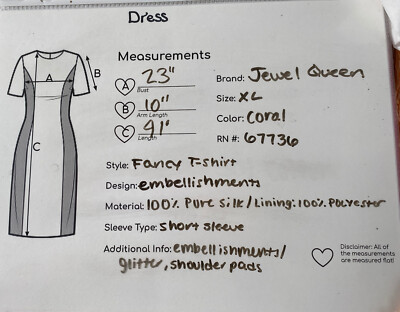 Dress
Measurements
A 23"
Bust
B 10"
Arm Length
C 41"
Length
Brand: Jewel Queen
Size: XL
Color: Coral
RN #: 67736
A
B
C
Style: Fancy T-shirt
Design: embellishments
Material: 100% Pure Silk / Lining: 100% Polyester
Sleeve Type: Short sleeve
Additional Info: embellishments/
glitter, shoulder pads
Disclaimer: All of
the measurements
are measured flat!